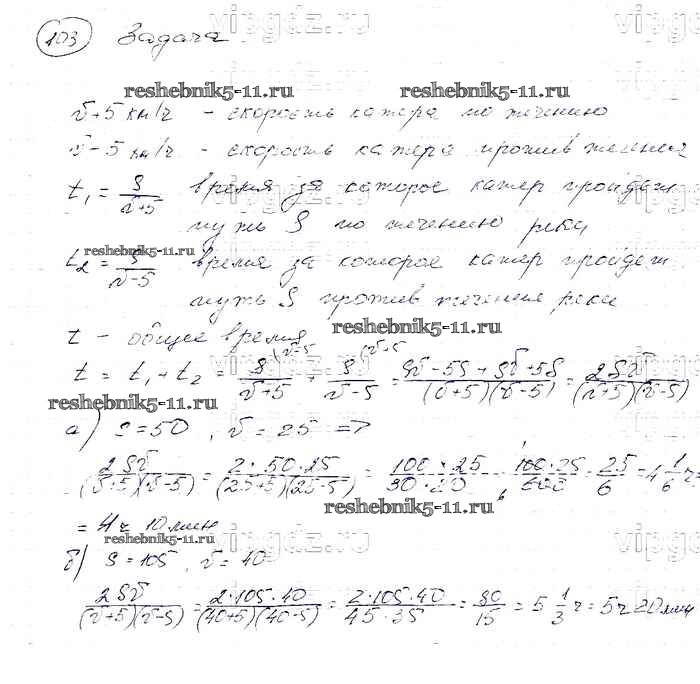 vipgdz.ru vipgdz.ru
103 Задача
reshebnik5-11.ru reshebnik5-11.ru
v+5 км/ч - скорость катера по течению
v-5 км/ч - скорость катера против течения
t₁ = S/(v+5) время за которое катер пройдет
путь S по течению реки
reshebnik5-11.ru
t₂ = S/(v-5) время за которое катер пройдет
путь S против течения реки
reshebnik5-11.ru
t - общее время
t = t₁ + t₂ = S/(v+5) (v-5 + S/(v-5) (v+5 = (Sv-5S+Sv+5S)/((v+5)(v-5)) = 2Sv/((v+5)(v-5))
reshebnik5-11.ru
а) S=50, v=25 =>
2Sv/((v+5)(v-5)) = 2·50·25/((25+5)(25-5)) = 100·25/30·20 = 100·25/600 = 25/6 = 4 1/6 ч =
reshebnik5-11.ru
= 4ч 10 мин
reshebnik5-11.ru
vipgdz.ru vipgdz.ru
б) S=105, v=40
2Sv/((v+5)(v-5)) = 2·105·40/((40+5)(40-5)) = 2·105·40/45·35 = 80/15 = 5 1/3 ч = 5ч 20 мин